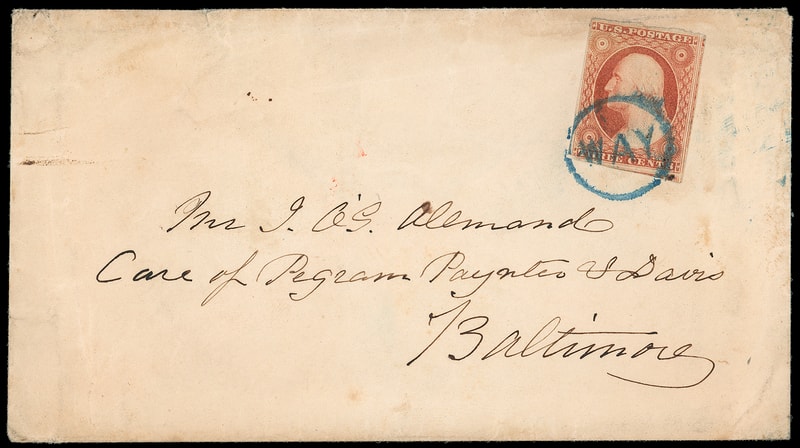 U.S. POSTAGE
THREE CENTS
WAY
Mr J. O'G. Alemand
Care of Pegram Paynter & Davis
Baltimore